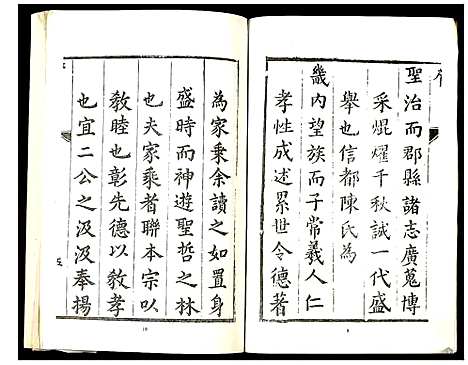 聖治而郡縣諸志廣蒐博
采焜燿千秋誠一代盛
舉也信都陳氏為
畿內望族而子常義人仁
孝性成述累世令德著
9
為家乘余讀之如置身
盛時而神遊聖哲之林
也夫家乘者聯本宗以
敎睦也彰先德以敎孝
也宜二公之汲汲奉揚
10